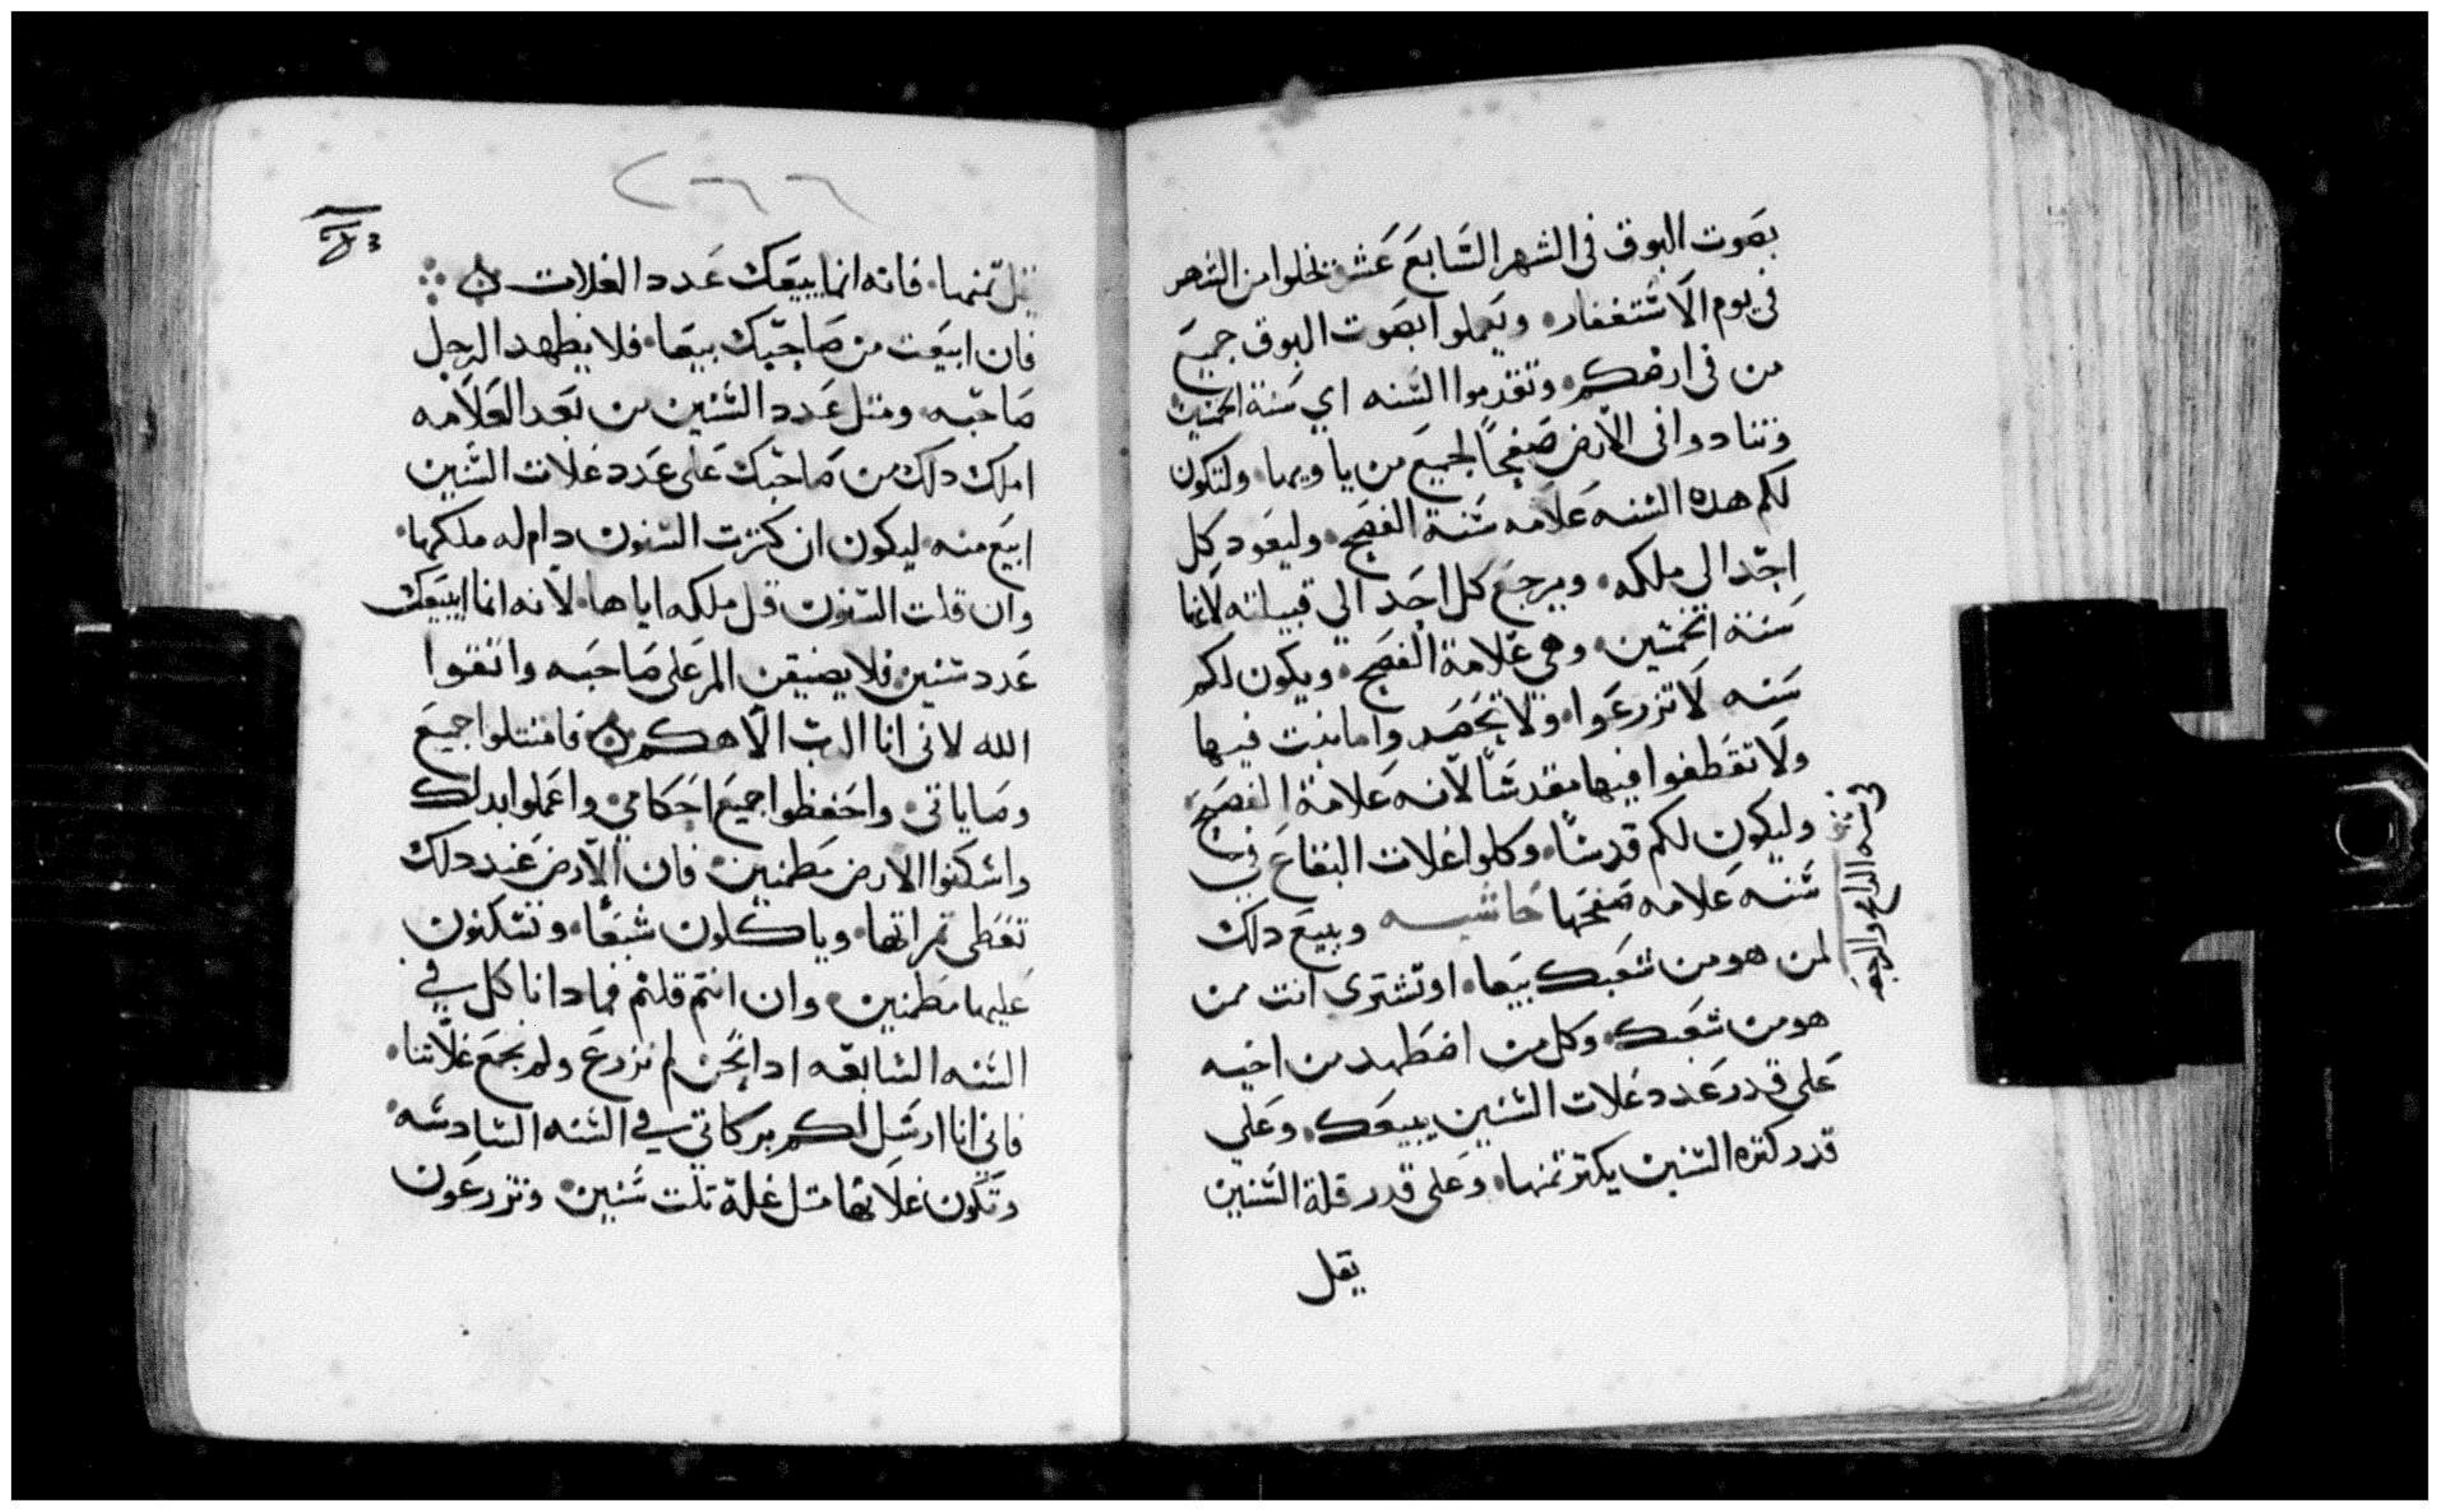 بصوت البوق في الشهر السابع عشر تخلوا من الشهر
في يوم الاستغفار ويعملوا بصوت البوق جميع
من في ارضكم وتقدموا السنه اي سنة الخمسين
وتنادوا في الارض صفحاً لجميع من ياويها ولتكون
لكم هده السنه علامه سنة الفصح وليعود كل
احد الى ملكه ويرجع كل احد الي قبيلته لانها
سنة الخمسين وهي علامة الفصح ويكون لكم
سنه لا تزرعوا ولا تحصد واما نبت فيها
ولا تقطفوا فيها مقدساً لانه علامة الفصح
وليكون لكم قدساً وكلوا غلات البقاع في
سنه علامه صفحها حاشيه وبيع دلك
لمن هو من شعبك بيعا او تشتري انت ممن
هو من شعبك وكل من اضطهد من اخيه
على قدر عدد غلات السنين يبيعك وعلي
قدر كتره السنين يكتر تمنها وعلى قدر قلة السنين
يقل
في سنه الراع والرجيه
٢٦٦
يقل تمنها فانه انما يبيعك عدد الغلات
فان ابيعت من صاحبك بيعا فلا يظهد الرجل
صاحبه ومتل عدد السنين من بعد العلامه
املك دلك من صاحبك على عدد غلات السنين
ابيع منه ليكون ان كترت السنون دام له ملكها
وان قلت السنون قل ملكه اياها لانه انما ايبيعك
عدد سنين فلا يضيقن المر على صاحبه واتقوا
الله لاني انا الرب الاهكم فامتتلوا جميع
وصاياتي واحفظوا جميع احكامي واعملوا بدلك
واسكنوا الارض مطمنين فان الارض عند دلك
تعطى تمراتها وياكلون شبعا وتسكنون
عليها مطمنين وان انتم قلتم فمادا ناكل في
السنه السابعه ادا نحن لم نزرع ولم نجمع غلاتنا
فاني انا ارسل لكم بركاتي في السنه السادسه
وتكون غلاتها متل غلة تلت سنين وتزرعون